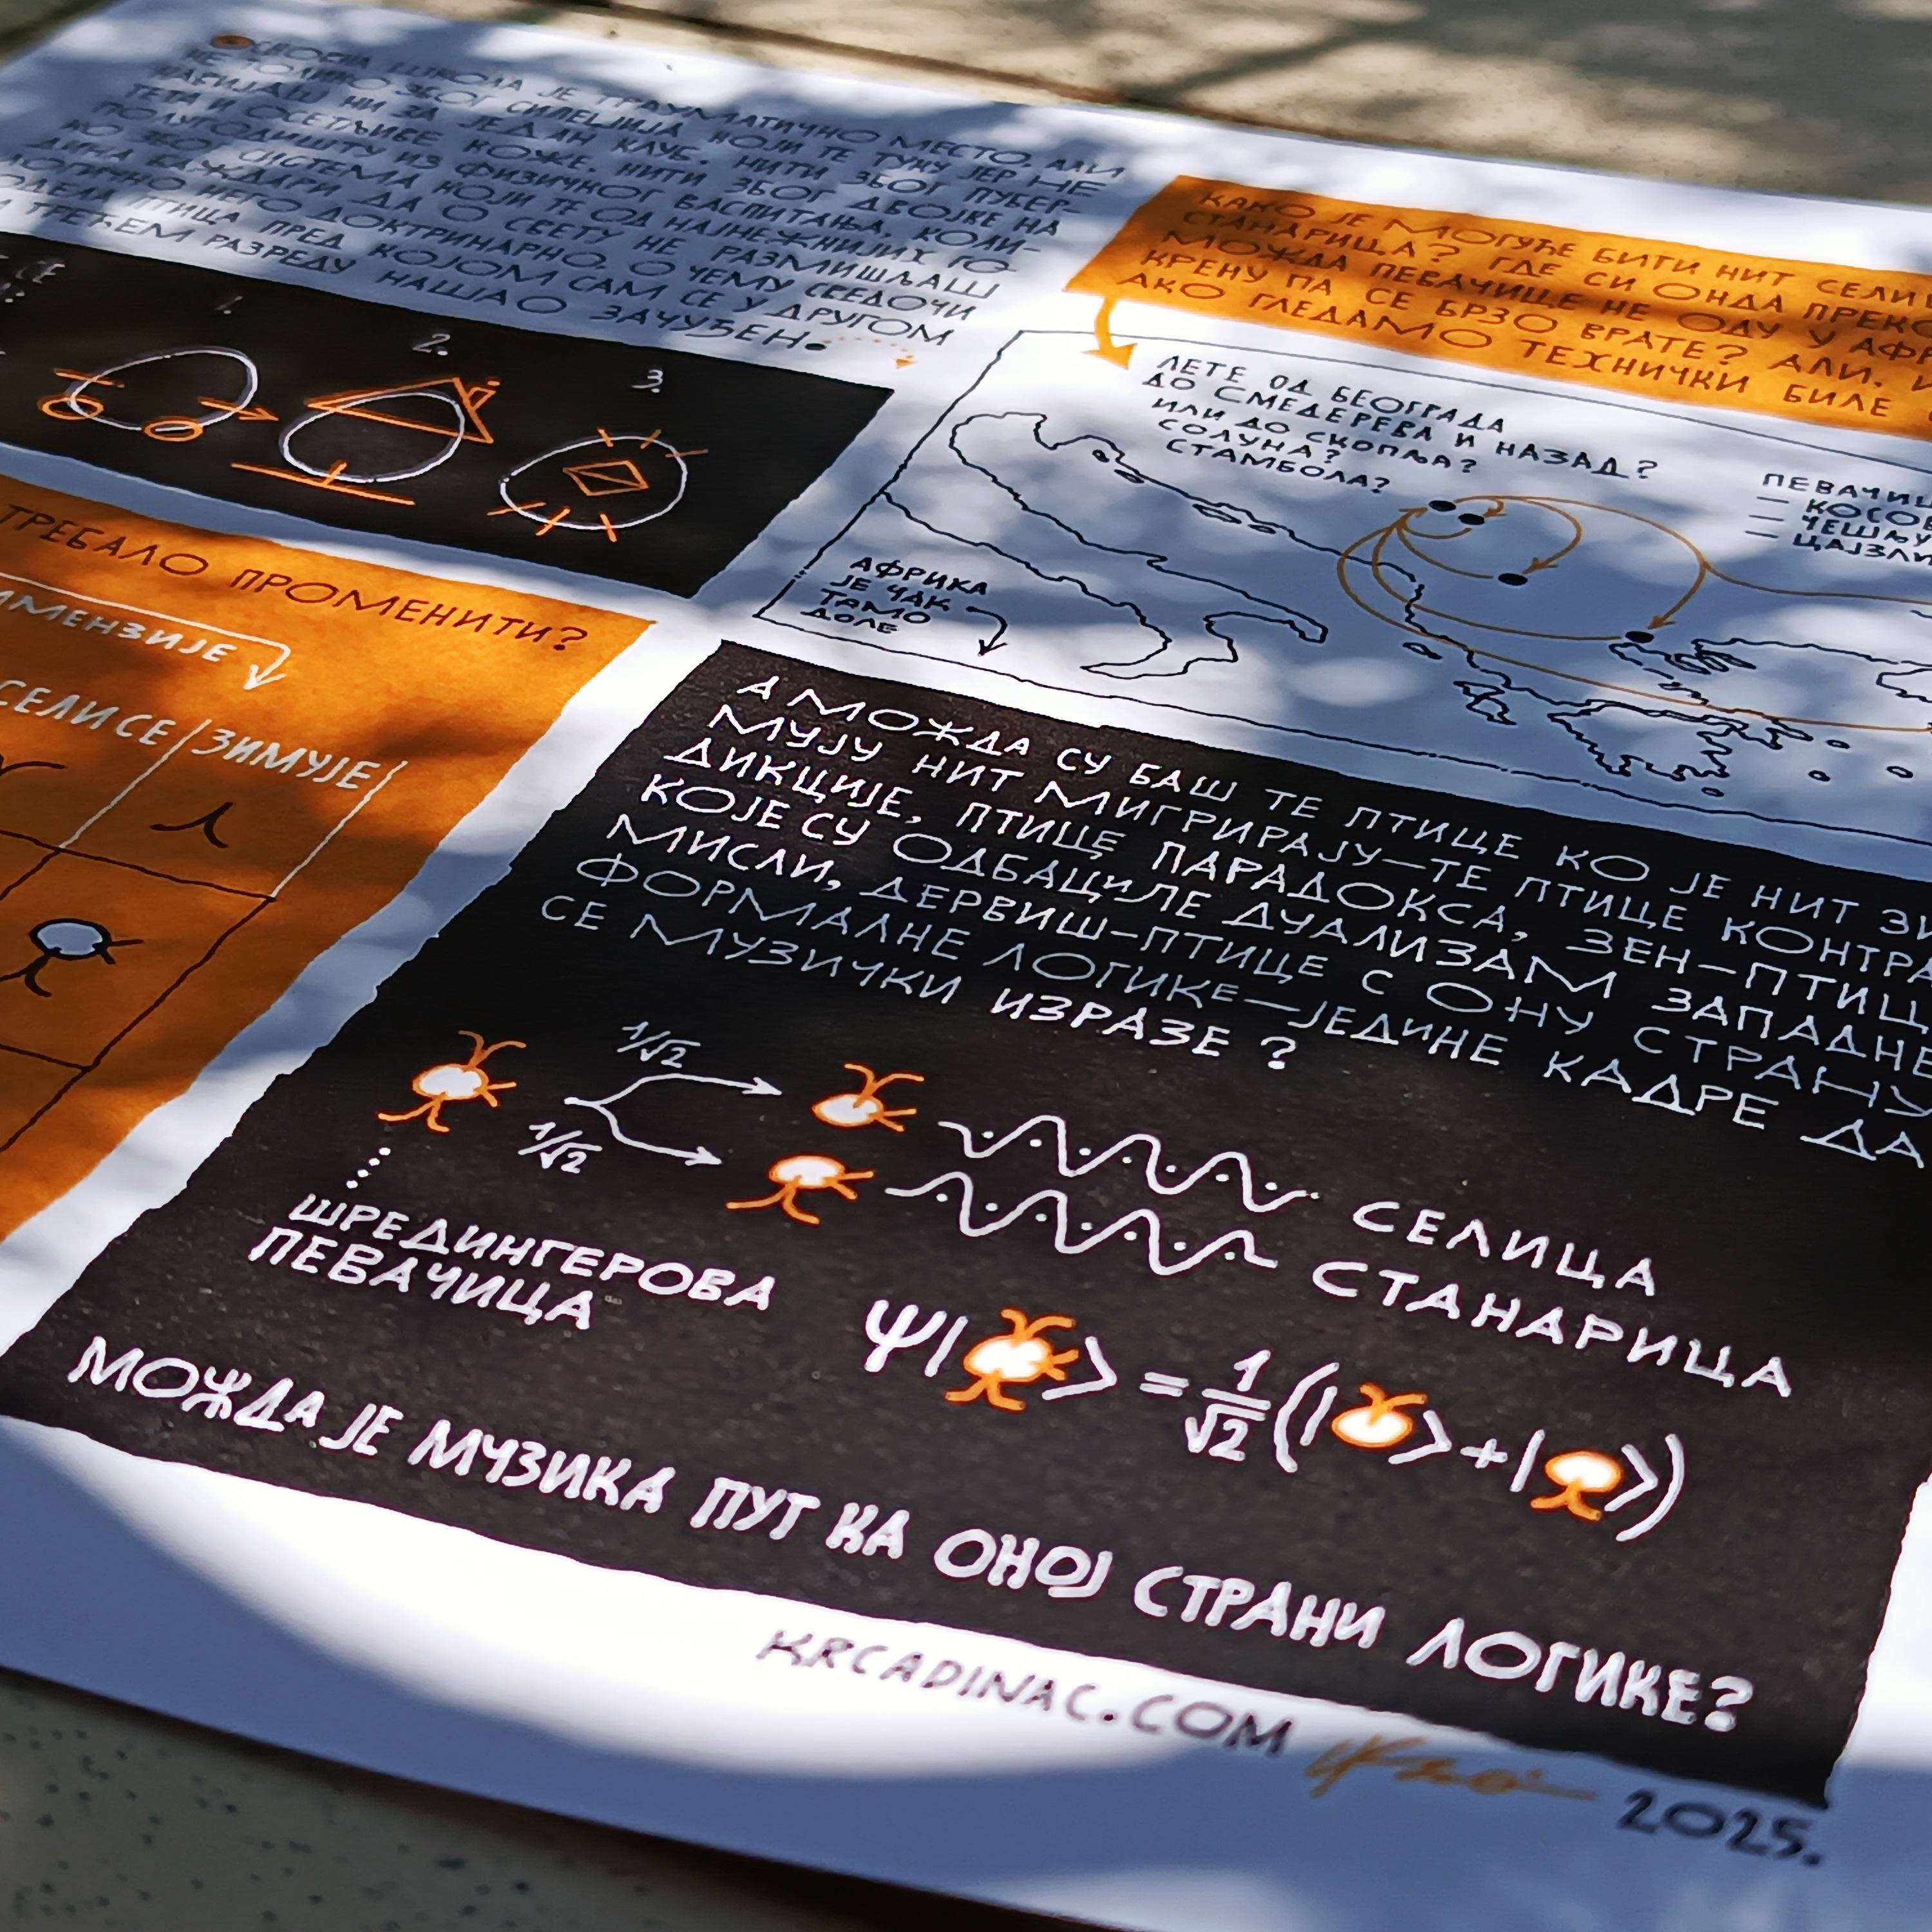 ОСНОВНА ШКОЛА ЈЕ ТРАУМАТИЧНО МЕСТО, АЛИ
НЕ ТОЛИКО ЗБОГ СИЛЕЏИЈА КОЈИ ТЕ ТУКУ ЈЕР НЕ
НАВИЈАШ НИ ЗА ЈЕДАН КЛУБ, НИТИ ЗБОГ ПУБЕР-
ТЕТА И ОСЕТЉИВЕ КОЖЕ, НИТИ ЗБОГ ДВОЈКЕ НА
ПОЛУГОДИШТУ ИЗ ФИЗИЧКОГ ВАСПИТАЊА, КОЛИ-
КО ЗБОГ СИСТЕМА КОЈИ ТЕ ОД НАЈНЕЖНИЈИХ ГО-
ДИНА ДА О СВЕТУ НЕ РАЗМИШЉАШ
ЛОГИЧНО НЕГО ДОКТРИНАРНО, О ЧЕМУ СВЕДОЧИ
ПОДЕЛА ПТИЦА ПРЕД КОЈОМ САМ СЕ У ДРУГОМ
И ТРЕЋЕМ РАЗРЕДУ НАШАО ЗАЧУЂЕН.
СЕ
1.
2.
3.
ТРЕБАЛО ПРОМЕНИТИ?
СЕЛИ СЕ
ЗИМУЈЕ
КАКО ЈЕ МОГУЋЕ БИТИ НИТ
СТАНАРИЦА? ГДЕ СИ ОНДА
МОЖДА ПЕВАЧИЦЕ НЕ ОДУ У
КРЕНУ ПА СЕ БРЗО ВРАТЕ? АЛИ,
АКО ГЛЕДАМО ТЕХНИЧКИ БИЛЕ
ЛЕТЕ ОД БЕОГРАДА
ДО СМЕДЕРЕВА И НАЗАД?
ИЛИ ДО СКОПЉА?
СОЛУНА?
СТАМБОЛА?
АФРИКА
ЈЕ ЧАК
ТАМО
ДОЛЕ
А МОЖДА СУ БАШ ТЕ ПТИЦЕ КО ЈЕ НИТ ЗИ
МУЈУ НИТ МИГРИРАЈУ—ТЕ ПТИЦЕ КОНТРА
ДИКЦИЈЕ, ПТИЦЕ ПАРАДОКСА, ЗЕН-ПТИЦ
КОЈЕ СУ ОДБАЦИЛЕ ДУАЛИЗАМ ЗАПАДНЕ
МИСЛИ, ДЕРВИШ-ПТИЦЕ С ОНУ СТРАНУ
ФОРМАЛНЕ ЛОГИКЕ—ЈЕДИНЕ КАДРЕ ДА
СЕ МУЗИЧКИ ИЗРАЗЕ?
1/√2
1/√2
СЕЛИЦА
СТАНАРИЦА
ШРЕДИНГЕРОВА
ПЕВАЧИЦА
Ψ| > = 1/√2 (| > + | >)
МОЖДА ЈЕ МУЗИКА ПУТ КА ОНОЈ СТРАНИ ЛОГИКЕ?
KRCADINAC.COM
2025.